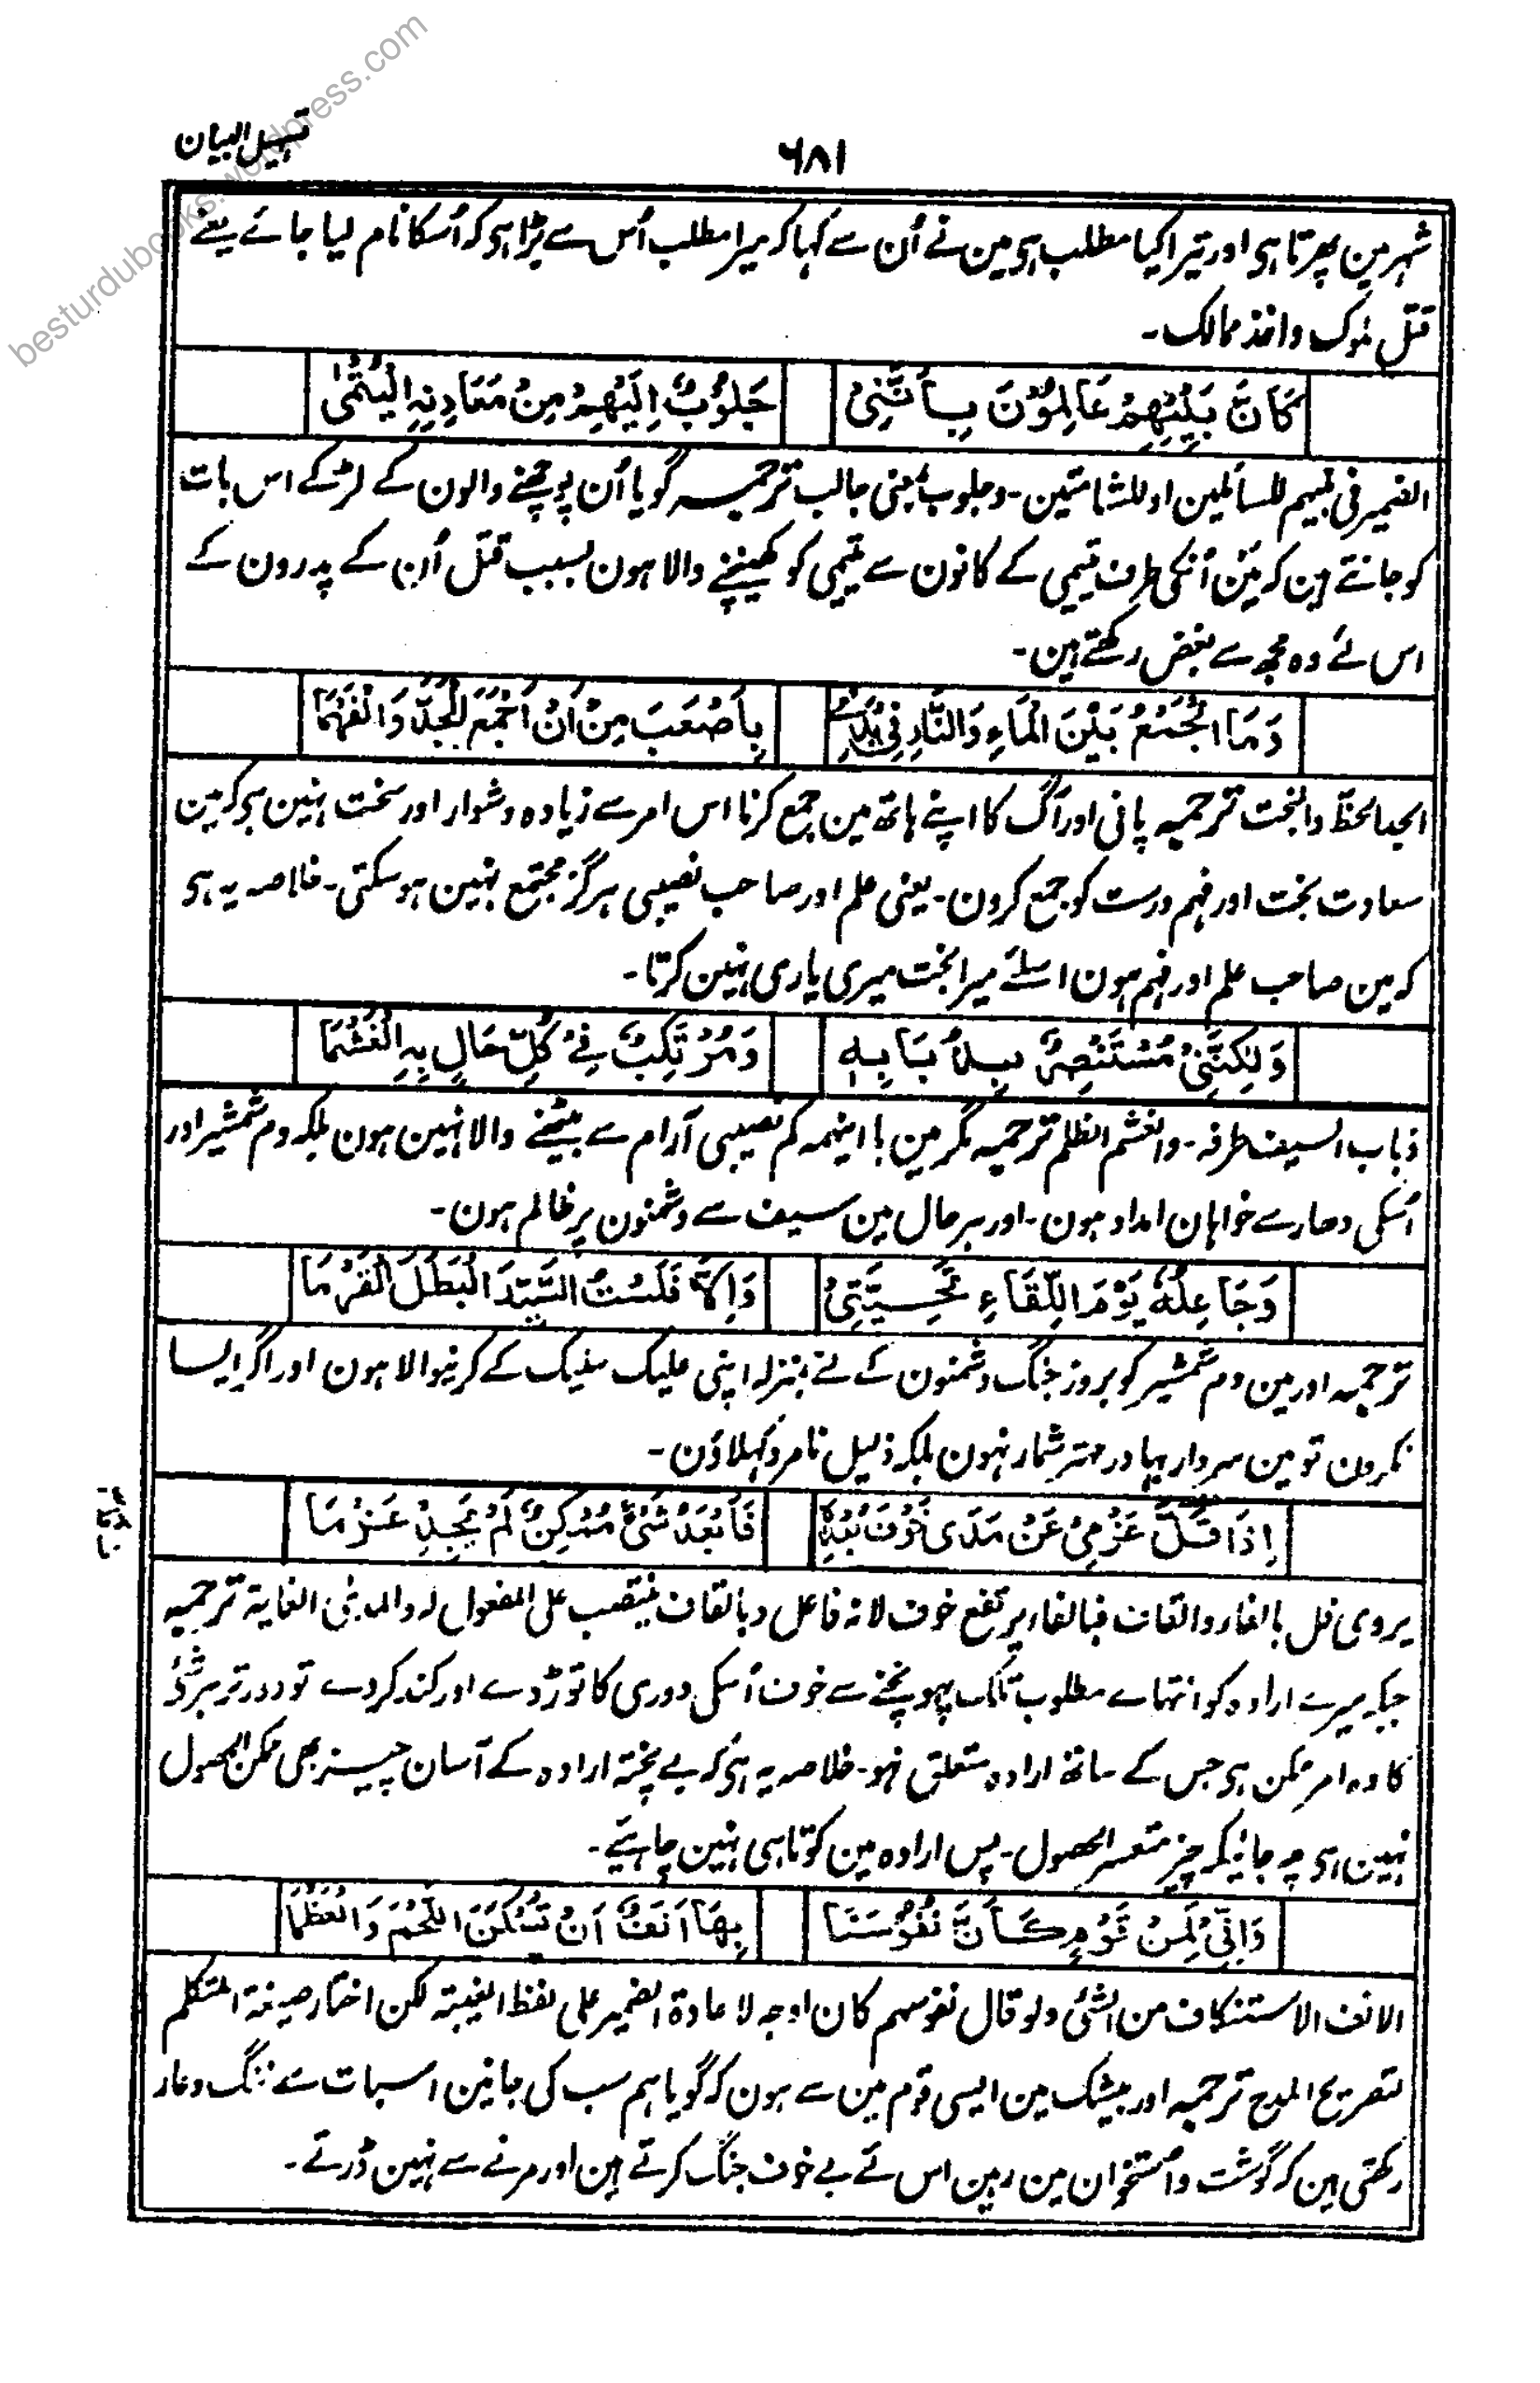 besturdubooks.wordpress.com
تسہیل البیان
۶۸۱
شہر مین پھرتا ہی اور تیرا کیا مطلب ہی مین نے اُن سے کہا کہ میرا مطلب اُس سے بڑا ہی کہ اُسکا نام لیا جائے یعنے
قتل ملوک و اخذ ممالک۔
كَاَنَّ بَنِيْهِمْ عَالِمُوْنَ بِاَنَّنِيْ جَلُوْبٌ اِلَيْهِمْ مِنْ مَعَادِنِهِ الْيُتْمٰى
الضمیر فی بنیہم للسائلین او للشامتین۔ وجلوب بمعنی جالب ترجمہ گویا اُن پوچھنے والون کے لڑکے اس بات
کو جانتے ہین کہ مین اُنکی طرف یتیمی کے کانون سے یتیمی کو کھینچنے والا ہون بسبب قتل اُن کے پدرون کے
اس لئے وہ مجھ سے بغض رکھتے ہین۔
وَمَا الْجَمْعُ بَيْنَ الْمَاءِ وَالنَّارِ فِيْ يَدِيْ بِاَصْعَبَ مِنْ اَنْ اَجْمَعَ الْجَدَّ وَالْفَهْمَا
الجد الحظ والبخت ترجمہ پانی اور آگ کا اپنے ہاتھ مین جمع کرنا اس امر سے زیادہ دشوار اور سخت نہین ہی کہ مین
سعادت بخت اور فہم درست کو جمع کرون۔ یعنی علم اور صاحب نصیبی ہرگز مجتمع نہین ہوسکتی۔ خلاصہ یہ ہی
کہ مین صاحب علم اور فہم ہون اسلئے میرا بخت میری یاری نہین کرتا۔
وَلٰكِنَّنِيْ مُسْتَنْصِرٌ بِذُبَابِهٖ وَمُرْتَكِبٌ فِيْ كُلِّ حَالٍ بِهِ الْغَشْمَا
ذباب السیف طرفہ۔ والغشم الظلم ترجمہ مگر مین با اینہمہ کم نصیبی آرام سے بیٹھنے والا نہین ہون بلکہ دم شمشیر اور
اُسکی دھار سے خواہان امداد ہون۔ اور ہر حال مین سیف سے دشمنون پر ظالم ہون۔
وَجَاعِلُهٗ يَوْمَ اللِّقَاءِ تَحِيَّتِيْ وَاِلَّا فَلَسْتُ السَّيِّدَ الْبَطَلَ الْقَرْمَا
ترجمہ اور مین دم شمشیر کو بروز جنگ دشمنون کے لئے بمنزلہ اپنی علیک سلیک کے کرنیوالا ہون اور اگر ایسا
نکرون تو مین سردار بہادر مہتر شمار نہون بلکہ ذلیل نامرد کہلاؤن۔
اِذَا فَلَّ عَزْمِيْ عَنْ مَدًى خَوْفُ بُعْدِهٖ فَاَبْعَدُ شَيْءٍ مُمْكِنٌ لَمْ يَجِدْ عَزْمَا
یروی فل بالفاء والقاف فبالفاء یرتفع خوف لانہ فاعل وبالقاف ینتصب علی المفعول لہ والمدی الغایۃ ترجمہ
جبکہ میرے ارادہ کو انتہاے مطلوب تلک پہونچنے سے خوف اُسکی دوری کا توڑ دے اور کند کردے تو دور تر ہر شَے
کا وہ امر ممکن ہی جس کے ساتھ ارادہ متعلق نہو۔ خلاصہ یہ ہی کہ بے پختہ ارادہ کے آسان چیز بھی ممکن الحصول
نہین ہی چہ جائیکہ چیز متعسر الحصول۔ پس ارادہ مین کوتاہی نہین چاہئیے۔
وَاِنِّيْ لَمِنْ قَوْمٍ كَاَنَّ نُفُوْسَنَا بِهَا اَنَفٌ اَنْ تَسْكُنَ اللَّحْمَ وَالْعَظْمَا
الانف الاستنکاف من الشئ ولو قال نفوسہم کان اوجہ لاعادۃ الضمیر علی لفظ الغیبتہ لکن اختار صیغۃ المتکلم
لتصریح المدح ترجمہ اور بیشک مین ایسی قوم مین سے ہون کہ گویا ہم سب کی جانین اسبات سے ننگ وعار
رکھتی ہین کہ گوشت و اُستخوان مین رہین اس لئے بے خوف جنگ کرتے ہین اور مرنے سے نہین ڈرتے۔